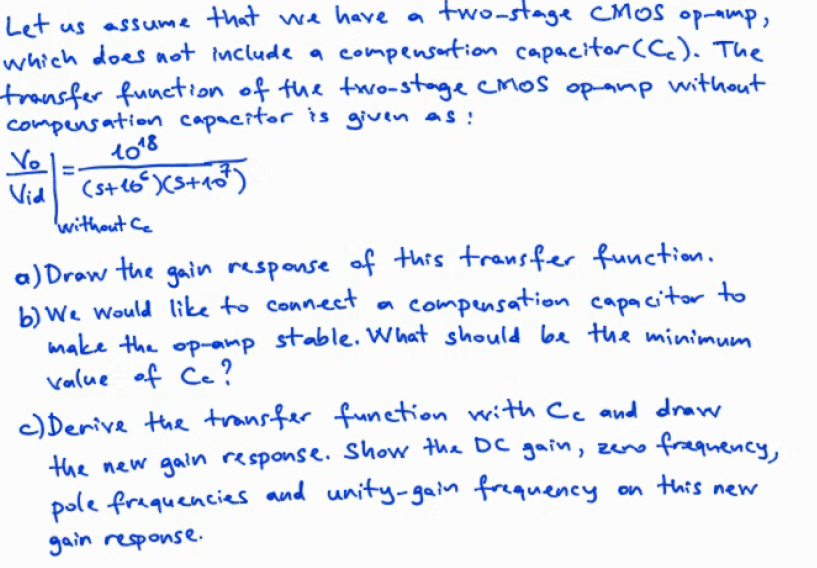 Let us assume that we have a two-stage CMOS op-amp,
which does not include a compensation capacitor (Cc). The
transfer function of the two-stage CMOS op-amp without
compensation capacitor is given as:
Vo/Vid |without Cc = 10^18 / (s+10^6)(s+10^7)
a) Draw the gain response of this transfer function.
b) We would like to connect a compensation capacitor to
make the op-amp stable. What should be the minimum
value of Cc?
c) Derive the transfer function with Cc and draw
the new gain response. Show the DC gain, zero frequency,
pole frequencies and unity-gain frequency on this new
gain response.